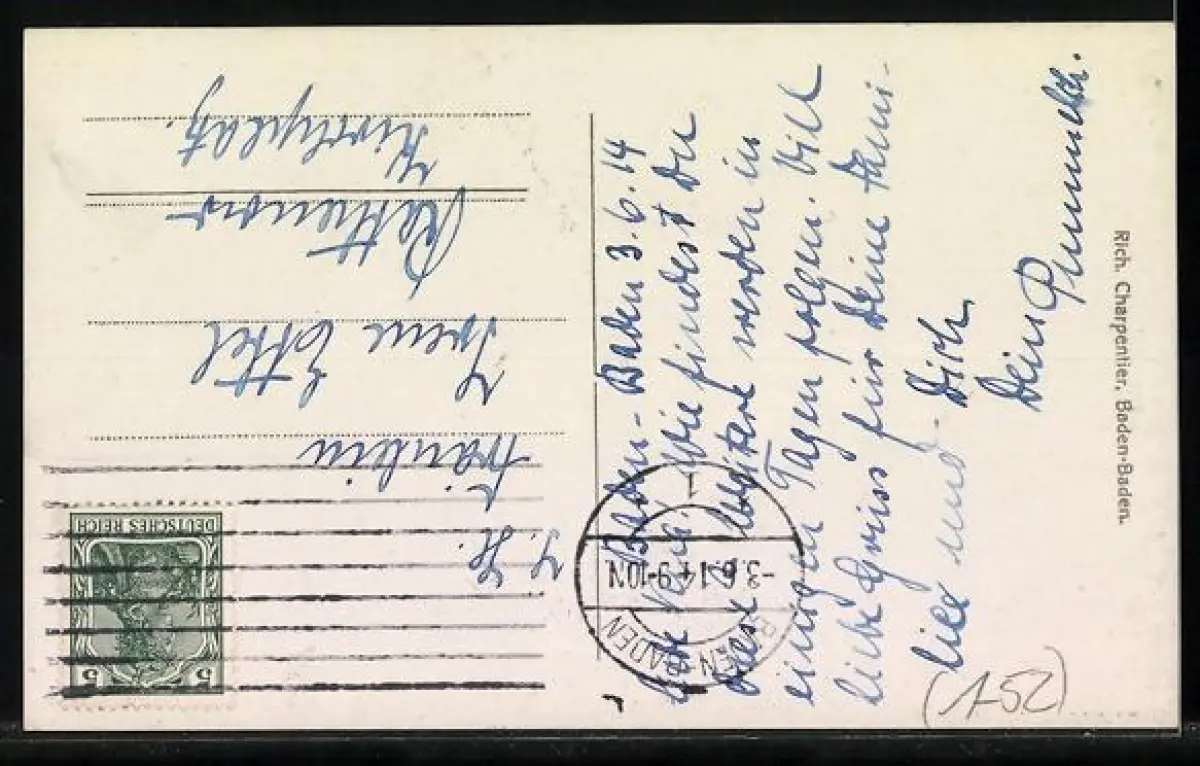 Baden-Baden 3.6.14
Wie findest Du
diese? Weitere werden in
einigen Tagen folgen. Viele
liebe Grüsse für Deine Fami-
lie und Dich
Dein
I. H.
Fräulein
Irene Ettel
Rathenow
Kirchplatz.
DEUTSCHES REICH
5 5
BADEN-BADEN
-3.6.14 9-10N.
Rich. Charpentier, Baden-Baden.
(152)